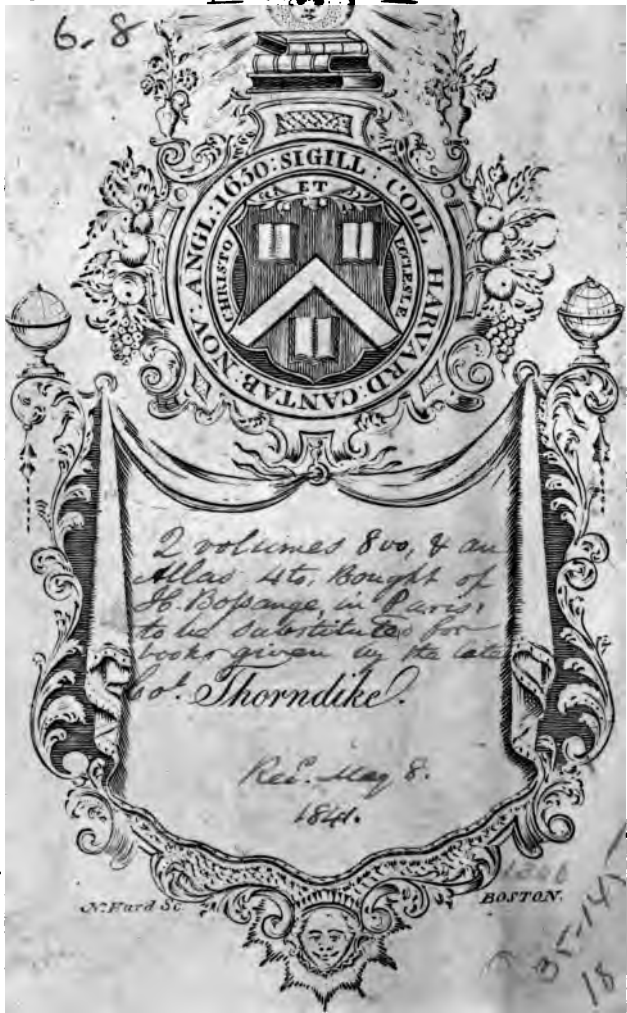 6. 8
SIGILL : COLL HARVARD : CANTAB : NOV : ANGL : 1650 :
CHRISTO ET ECCLESIÆ
2 volumes 8vo, & an
Atlas 4to, Bought of
H. Bossange, in Paris,
to be substituted for
books given by the late
Col. Thorndike.
Rec.d May 8.
1841.
N. Hurd Sc.
BOSTON.
18